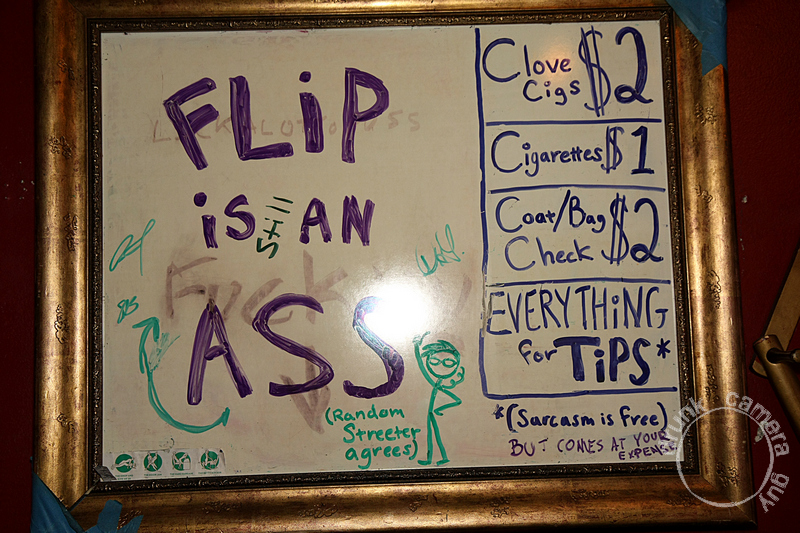 FLiP
is still AN
ASS
(Random
Streeter
agrees)
Clove $2
Cigs
Cigarettes $1
Coat/Bag $2
Check
EVERYTHiNG
for TiPS*
*(Sarcasm is free)
BUT COMES AT YOUR
EXPENSE
drunk camera guy